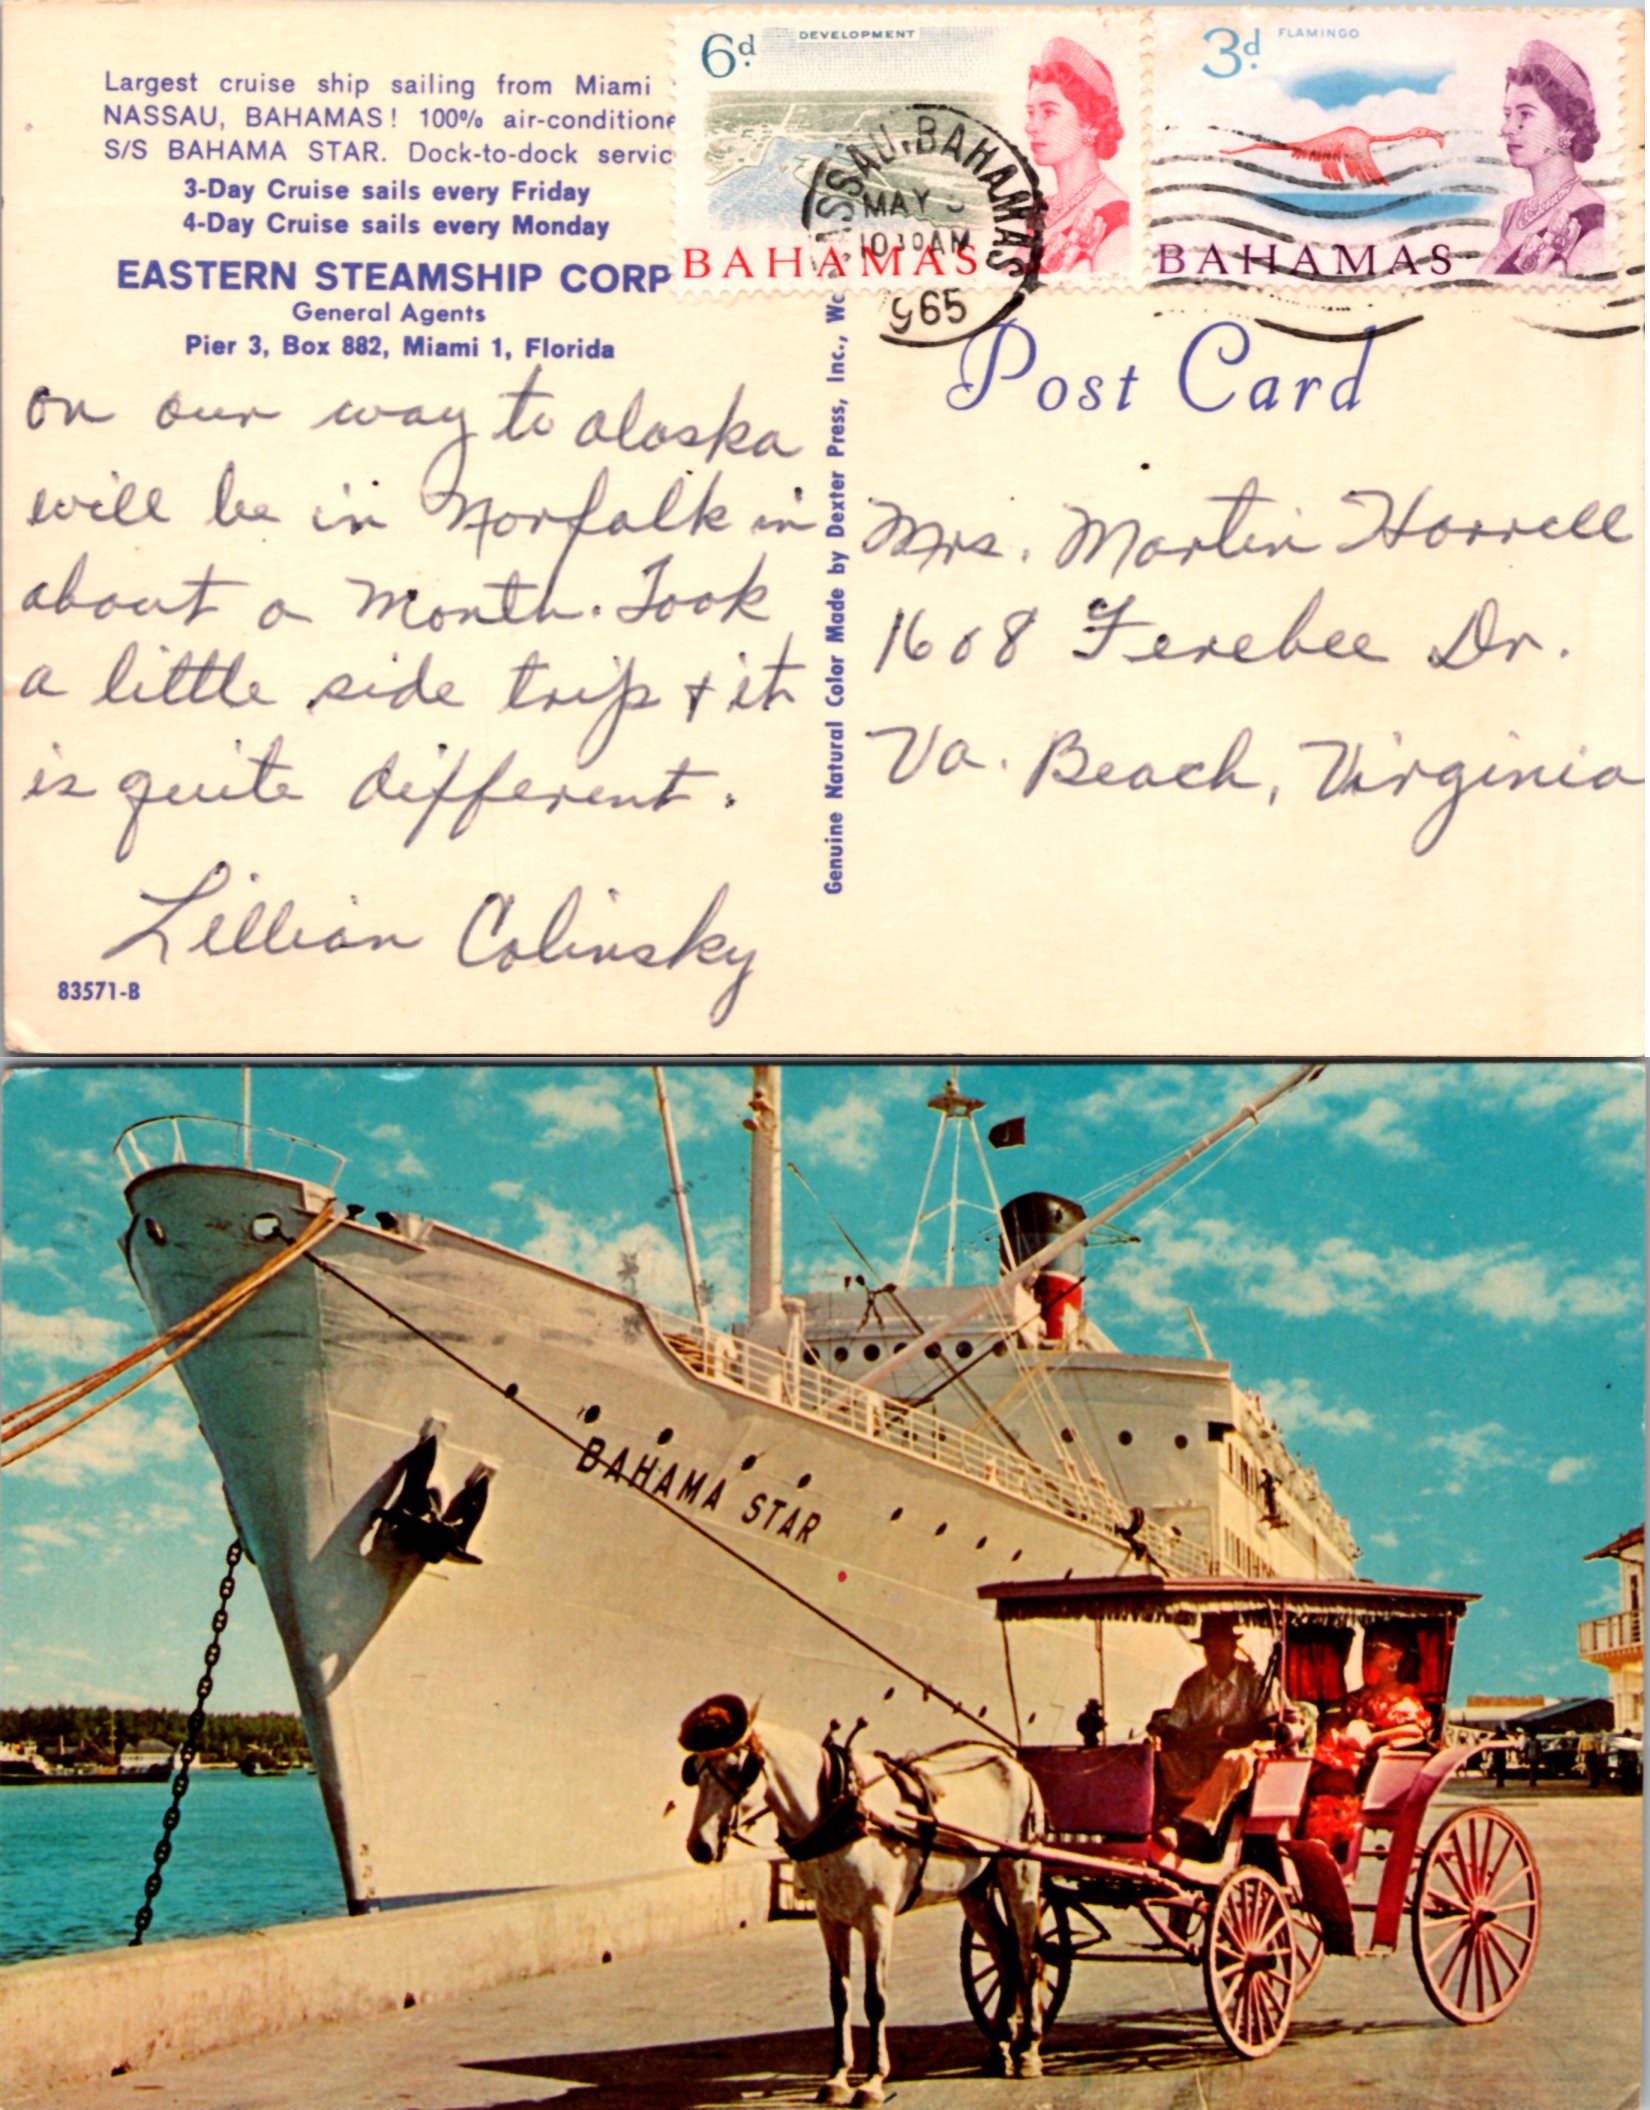 Largest cruise ship sailing from Miami
NASSAU, BAHAMAS! 100% air-conditione
S/S BAHAMA STAR. Dock-to-dock servic
3-Day Cruise sails every Friday
4-Day Cruise sails every Monday
EASTERN STEAMSHIP CORP
General Agents
Pier 3, Box 882, Miami 1, Florida
on our way to alaska
will be in Norfolk in
about a month. Took
a little side trip & it
is quite different.
Lillian Colinsky
83571-B
Genuine Natural Color Made by Dexter Press, Inc.,
6d.
DEVELOPMENT
BAHAMAS
3d.
FLAMINGO
BAHAMAS
SSAU, BAHAMAS
MAY
10 30 AM
965
Post Card
Mrs. Martin Harrell
1608 Ferebee Dr.
Va. Beach, Virginia
BAHAMA STAR